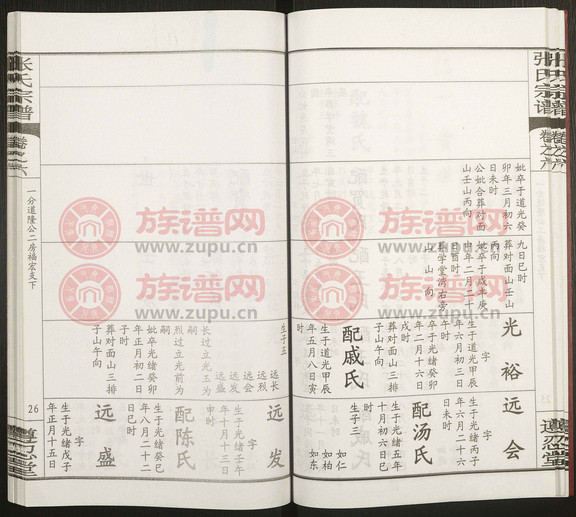 张氏宗谱
卷之六
遵忍堂
妣卒于道光癸
卯年三月初六
日未时
公妣合葬对面
山壬山丙向
九日巳时
葬对面山壬山
丙向
妣卒于咸丰庚
申年二月二十
日酉时
葬学堂湾右旁
山山向
光裕
字
生于道光甲辰
年六月初三日
时
卒于光绪癸卯
年二月十六日
戌时
葬对面山三排
子山午向
配戚氏
生于道光甲辰
年五月八日寅
时
生子五
远长
远烈
远会
远发
远盛
长过立光玉为
嗣
烈过立光前为
嗣
妣卒光绪癸卯
年正月初二日
子时
葬对面山三排
子山午向
远会
字
生于光绪丙子
年六月二十六
日未时
配汤氏
生于光绪五年
十月初六日巳
时
生子三
如仁
如柏
如东
远发
字
生于光绪壬午
年十月十三日
申时
配陈氏
生于光绪癸巳
年八月二十二
日巳时
远盛
字
生于光绪戊子
年正月十五日
张氏宗谱
卷之六
一分道隆公二房福宏支下
26
遵忍堂
族谱网
www.zupu.cn
族谱网
www.zupu.cn
族谱网
www.zupu.cn
族谱网
www.zupu.cn